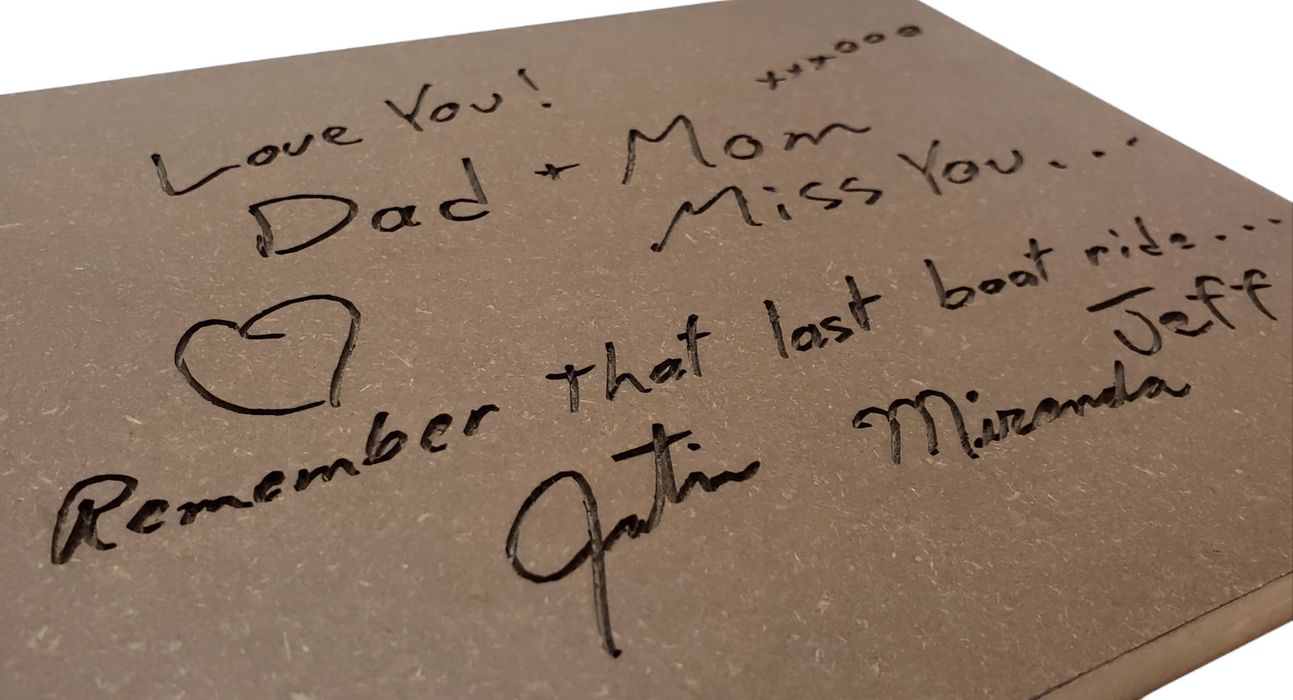 Love You!
xxxooo
Dad + Mom
Miss You...
Remember that last boat ride...
Jeff
Miranda